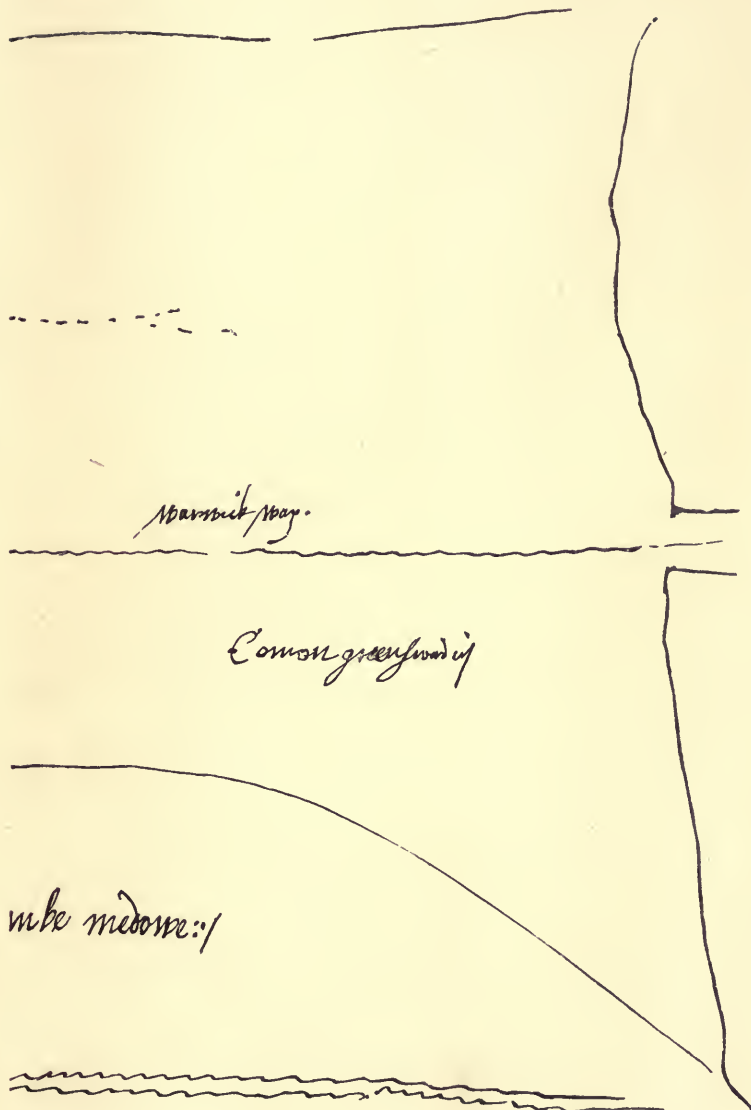 warwick way.
Comon greensward
mbe medowe::/